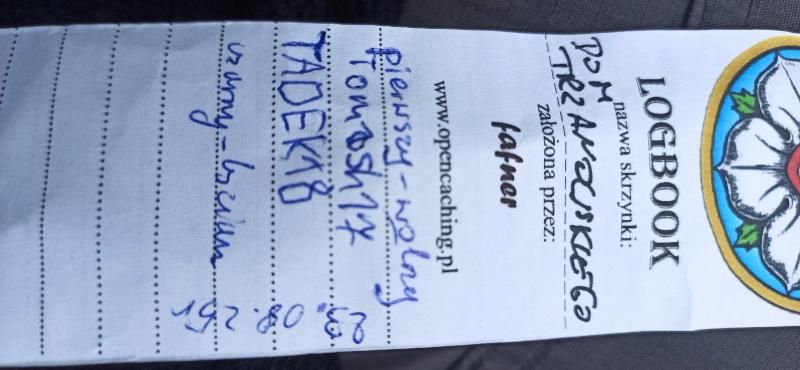 LOGBOOK
nazwa skrzynki:
DOM
TRZANOWSKIEGO
założona przez:
fafner
www.opencaching.pl
pierwszy-wolny
Tomash17
TADEK18
czarny-